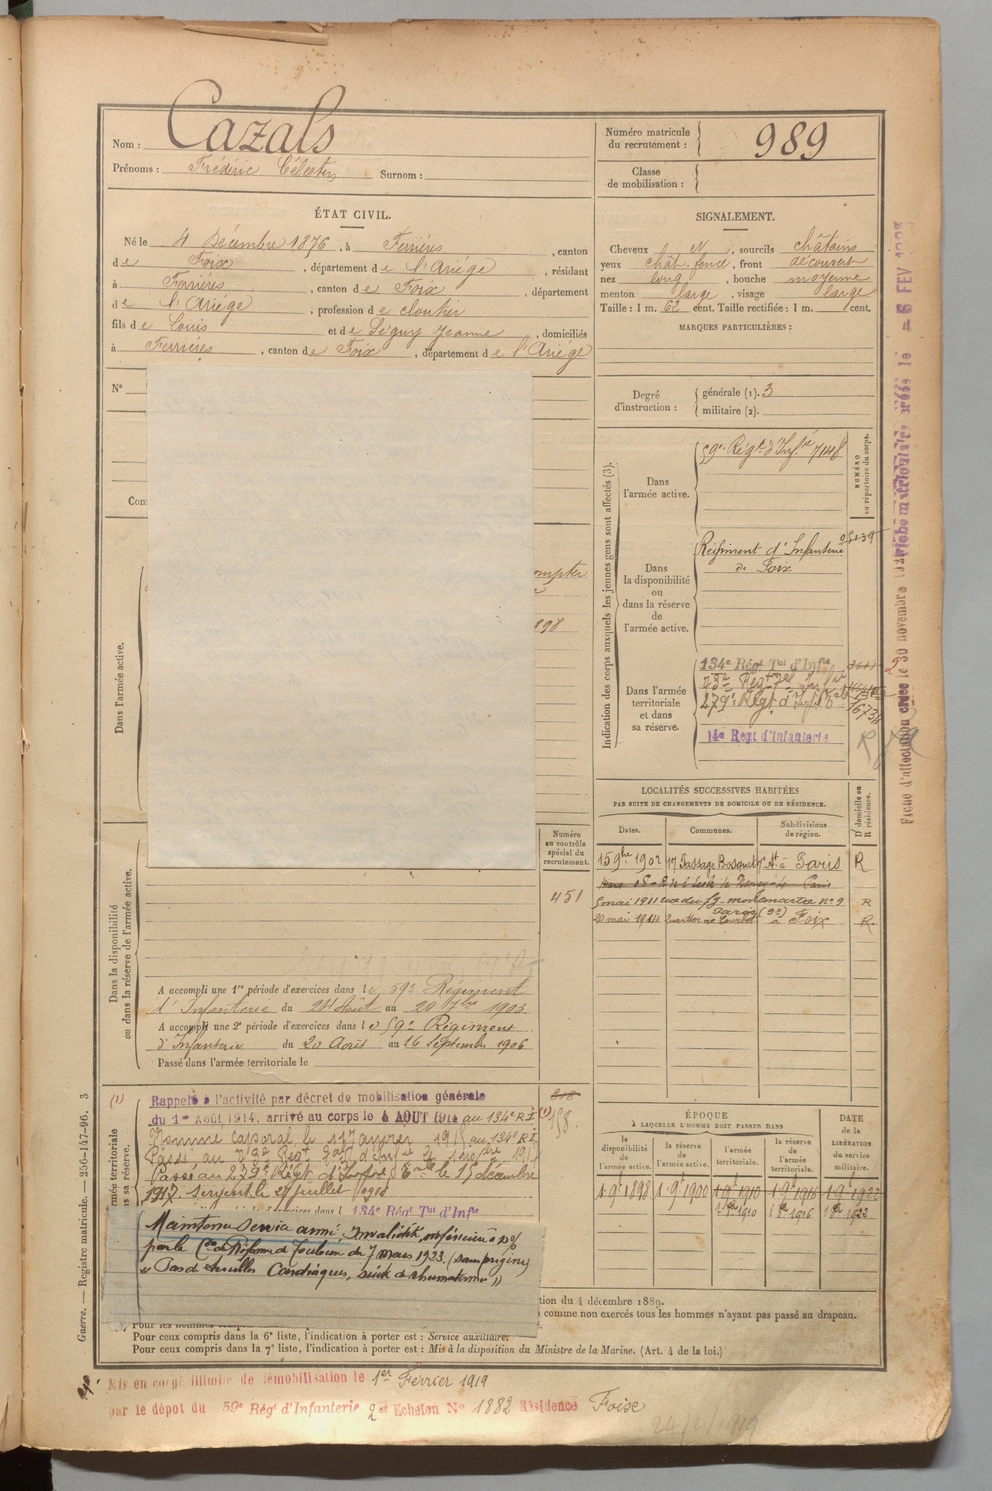 Nom : Cazals
Prénoms : Frédéric Célestin Surnom :
Numéro matricule du recrutement : 989
Classe de mobilisation :
ÉTAT CIVIL.
Né le 4 Décembre 1876, à Ferrières, canton
de Foix, département de l'Ariège, résidant
à Ferrières, canton de Foix, département
de l'Ariège, profession de cloutier
fils de Louis et de Séguy Jeanne, domiciliés
à Ferrières, canton de Foix, département de l'Ariège
SIGNALEMENT.
Cheveux N, sourcils châtains
yeux chât. foncé, front découvert
nez long, bouche moyenne
menton large, visage large
Taille : 1 m. 62 cent. Taille rectifiée : 1 m. cent.
MARQUES PARTICULIÈRES :
Degré d'instruction :
générale (1). 3
militaire (2).
N°
Com
Dans l'armée active.
ompter
898
Indication des corps auxquels les jeunes gens sont affectés (3).
NUMÉRO au répertoire du corps.
Dans l'armée active.
59e Régt d'Infie 7148
Dans la disponibilité ou dans la réserve de l'armée active.
Régiment d'Infanterie
de Foix
Dans l'armée territoriale et dans sa réserve.
134e Régt Tal d'Infie
279e Régt d'Inf
14e Regt d'Infanterie
LOCALITÉS SUCCESSIVES HABITÉES
PAR SUITE DE CHANGEMENTS DE DOMICILE OU DE RÉSIDENCE.
Dates. Communes. Subdivisions de région.
D domicile ou R résidence.
15 9bre 1902 17 Passage Bosquet 7e At à Paris R
5 mai 1911 rue du fg montmartre No 9 R
Paris (9e)
20 mai 1911 à Foix R.
Numéro au contrôle spécial du recrutement.
451
Dans la disponibilité ou dans la réserve de l'armée active.
A accompli une 1re période d'exercices dans le 59e Régiment
d'Infanterie du 24 Août au 20 7bre 1903
A accompli une 2e période d'exercices dans le 59e Régiment
d'Infanterie du 20 Août au 16 Septembre 1906
Passé dans l'armée territoriale le
(1) Rappelé à l'activité par décret de mobilisation générale
du 1er Août 1914, arrivé au corps le 4 AOUT 1914 au 134e R I
Nommé caporal le au 134e R I
Passé au 279e Régt d'Infie le 15 décembre
1917. Sergent le juillet 1918
134e Régt Tal d'Infie
Maintenu service armé, Invalidité inférieure à 10%
par la Con de Réforme de Toulouse du 7 mars 1923. (sans origine)
"Pas de troubles Cardiaques, suite de rhumatisme"
ÉPOQUE
À LAQUELLE L'HOMME DOIT PASSER DANS
la disponibilité de l'armée active.
la réserve de l'armée active.
l'armée territoriale.
la réserve de l'armée territoriale.
DATE de la LIBÉRATION DU SERVICE militaire.
1 9e 1898 1 9e 1900 1 9e 1910 1 9e 1916 1 9e 1922
tion du 4 décembre 1889.
comme non exercés tous les hommes n'ayant pas passé au drapeau.
Pour ceux compris dans la 6e liste, l'indication à porter est : Service auxiliaire.
Pour ceux compris dans la 7e liste, l'indication à porter est : Mis à la disposition du Ministre de la Marine. (Art. 4 de la loi.)
Mis en congé illimité de démobilisation le 1er Février 1919
par le dépot du 59e Régt d'Infanterie 2e Echelon No 1882 Résidence Foix
24/2/1919
Guerre. — Registre matricule. — 250-147-96. 3